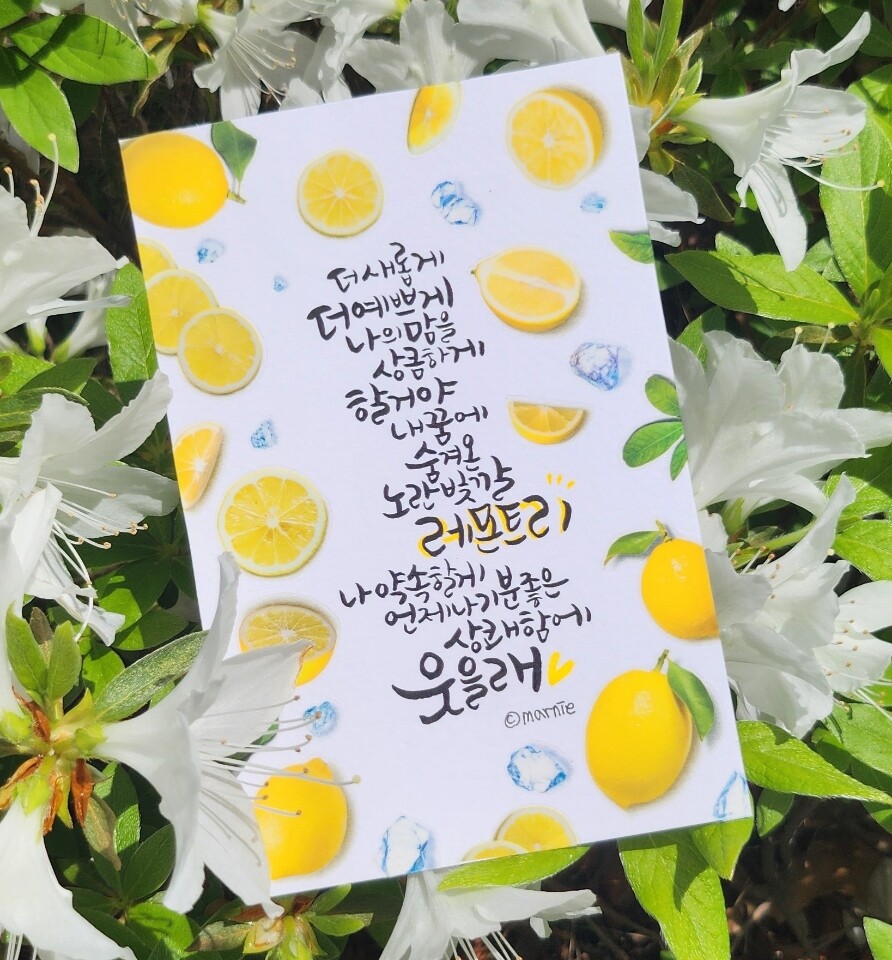 더 새롭게
더 예쁘게
나의 맘을
상큼하게
할거야
내 꿈에
숨겨온
노란 빛깔
레몬트리
나 약속할게
언제나 기분좋은
상쾌함에
웃을래
©marnie